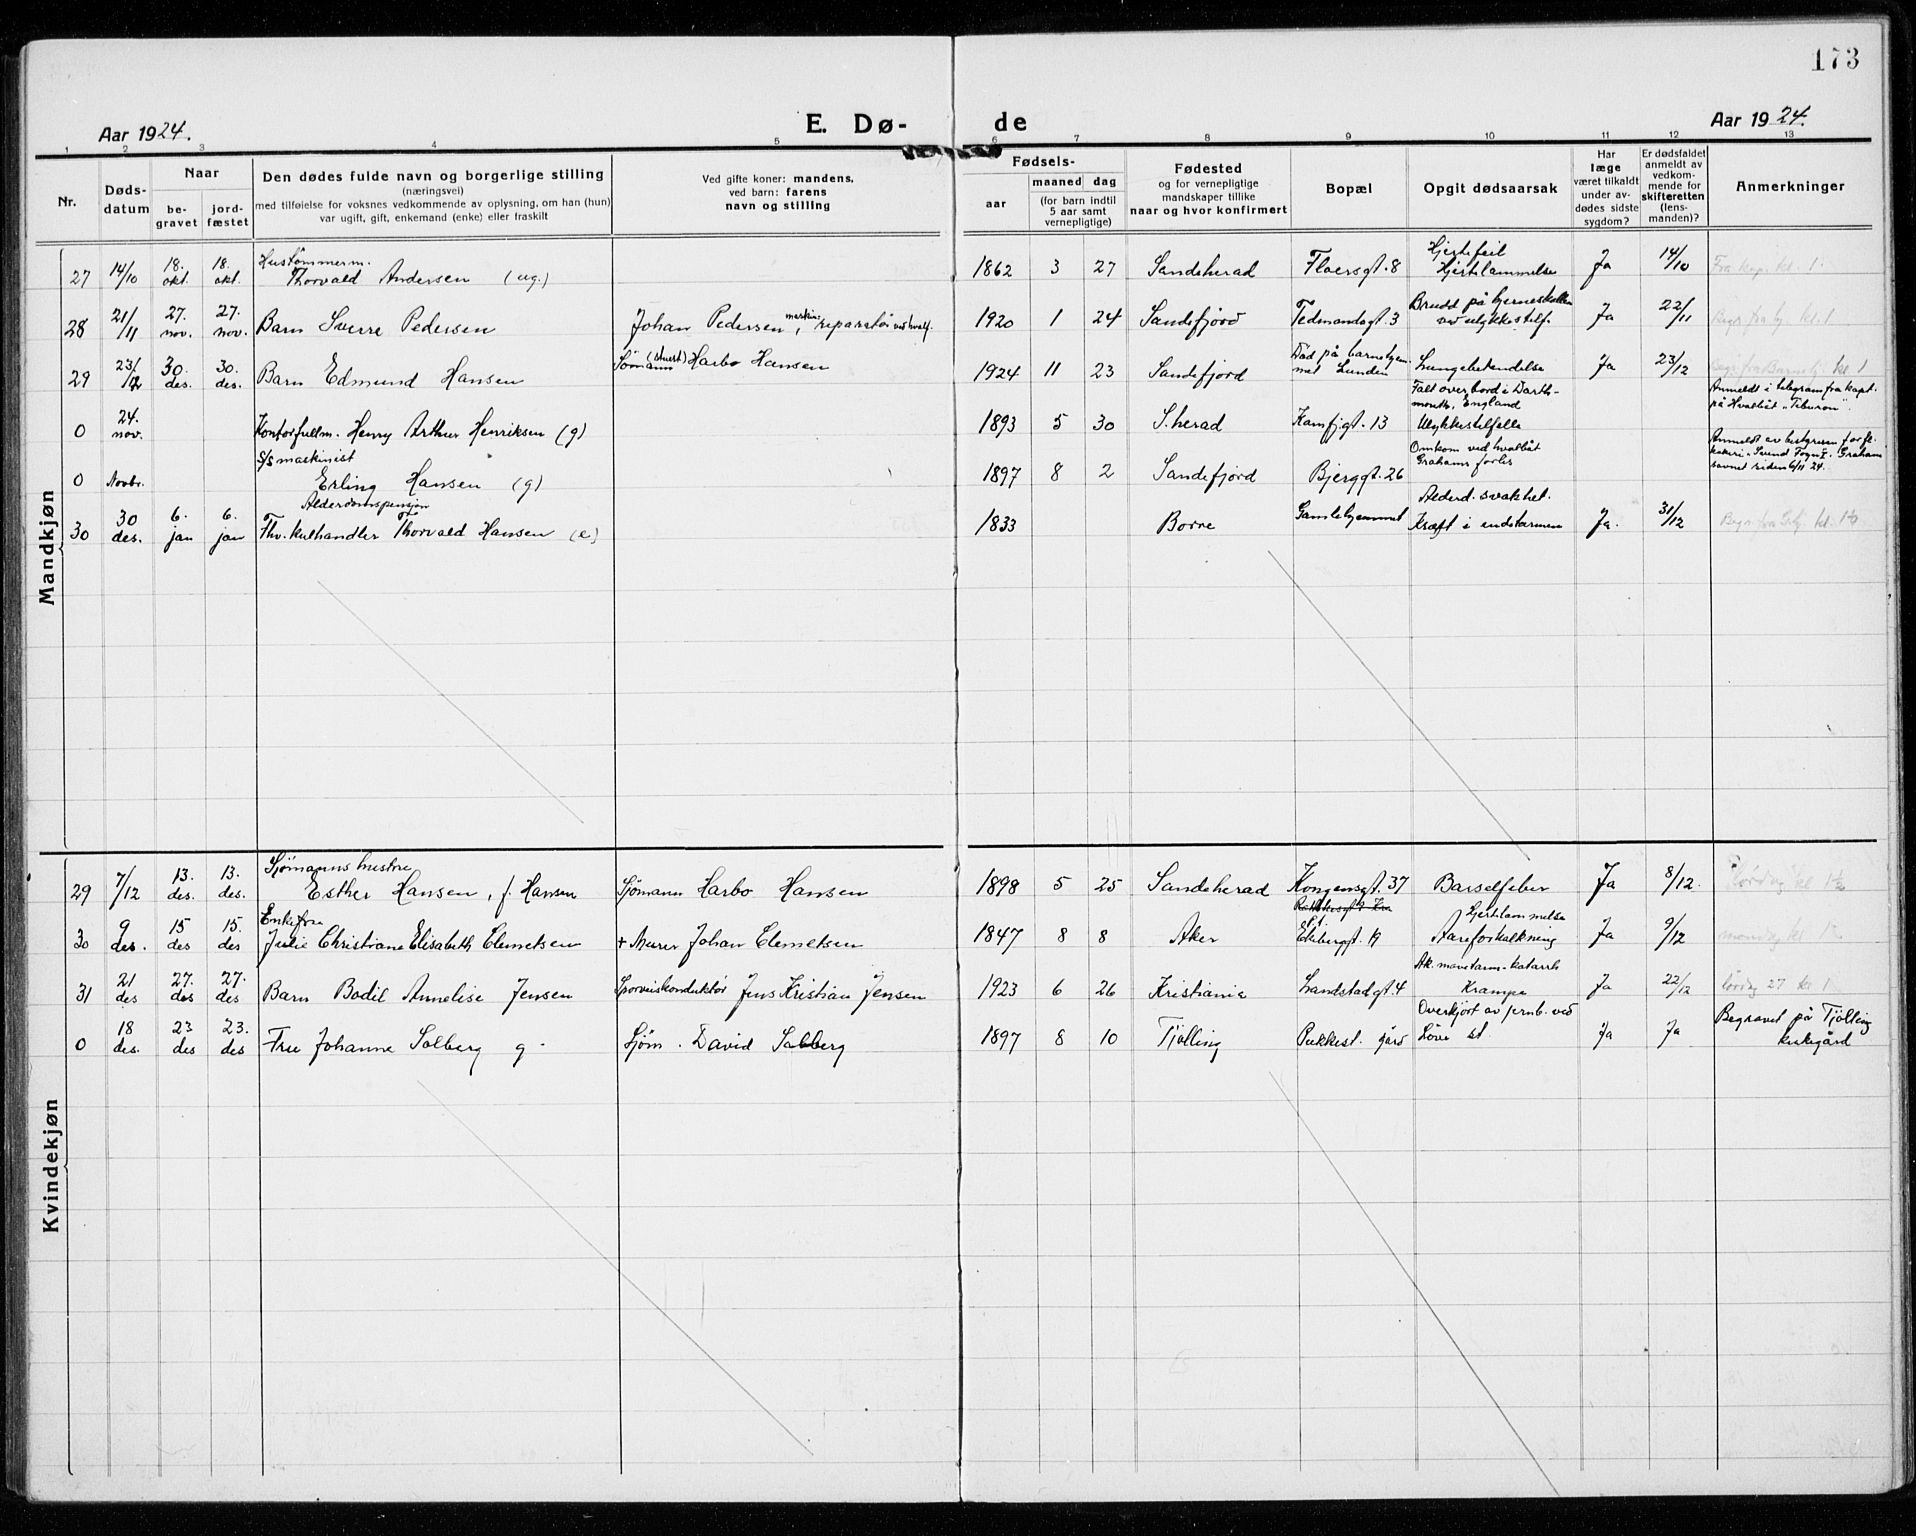 173
Aar 1924. E. Dø- de Aar 1924.
1 2 3 4 5 6 7 8 9 10 11 12 13
Nr.
Døds-
datum
Naar
be-
gravet
jord-
fæstet
Den dødes fulde navn og borgerlige stilling
(næringsvei)
med tilføielse for voksnes vedkommende av oplysning, om han (hun)
var ugift, gift, enkemand (enke) eller fraskilt
Ved gifte koner: mandens,
ved barn: farens
navn og stilling
Fødsels-
aar
maaned dag
(for barn indtil
5 aar samt
vernepligtige)
Fødested
og for vernepligtige
mandskaper tillike
naar og hvor konfirmert
Bopæl
Opgit dødsaarsak
Har
læge
været tilkaldt
under av-
dødes sidste
sygdom?
Er dødsfaldet
anmeldt av
vedkom-
mende for
skifteretten
(lens-
manden)?
Anmerkninger
Mandkjøn
27 14/10 18. okt. 18. okt. Hustømmerm. Thorvald Andersen (ug.) 1862 3 27 Sandeherad Floersgt. 8 Hjertefeil Hjertelammelse Ja 14/10
28 21/11 27. nov. 27. nov. Barn Sverre Pedersen Johan Pedersen, maskin-reparatør 1920 1 24 Sandefjord Tedmandsgt. 3 Brudd på hjerneskallen ved ulykkestilf. Ja 22/11
29 23/12 30. des. 30. des. Barn Edmund Hansen Sjømann Harbo Hansen 1924 11 23 Sandefjord Død på barnehjem-met Lunden Lungebetendelse Ja 23/12
0 24. nov. Kontorfullm. Henry Arthur Henriksen (g) 1893 5 30 S.herad Kamfjgt. 13 Falt overbord i Darth-mouth, England Ulykkestilfelle Anmeldt i telegram fra kapt. på Hvalbåt "Tiburon".
0 Novbr. S/S maskinist Erling Hansen (g) 1897 8 2 Sandefjord Bjerggt. 26 Omkom ved hvalbåt Grahams forlis Anmeldt av bestyreren for fl. kokeri Svend Foyn I. Graham savnet siden 6/11 24.
30 30 des. 6. jan 6. jan Alderdomspensjon Thv. kulhandler Thorvald Hansen (e) 1833 Borre Gamlehjemmet Alderd. svakhet. Kræft i endetarmen Ja. 31/12
Kvindekjøn
29 7/12 13. des. 13. des. Sjømanns hustru Esther Hansen, f. Hansen Sjømann Harbo Hansen 1898 5 25 Sandeherad Kongensgt. 37 Barselfeber Ja 8/12.
30 9 des. 15 des 15. des Enkefru Julie Christiane Elisabeth Clemetsen + Murer Johan Clemetsen 1847 8 8 Aker Ekebergt. Hjertelammelse Aareforkalkning Ja 9/12
31 21 des 27. des 27. des Barn Bodil Annelise Jensen Sporveiskonduktør Jens Kristian Jensen 1923 6 26 Kristiania Landstadgt. 4 Ak. mavetarm-katarrh Krampe Ja 22/12 lørdag 27 kl 1
0 18 des. 23 des 23. des Fru Johanne Solberg g. Sjøm. David Solberg 1897 8 10 Tjølling Pukkest. gård Overkjørt av jernb. ved Løve st. Ja Ja Begravet på Tjølling kirkegård